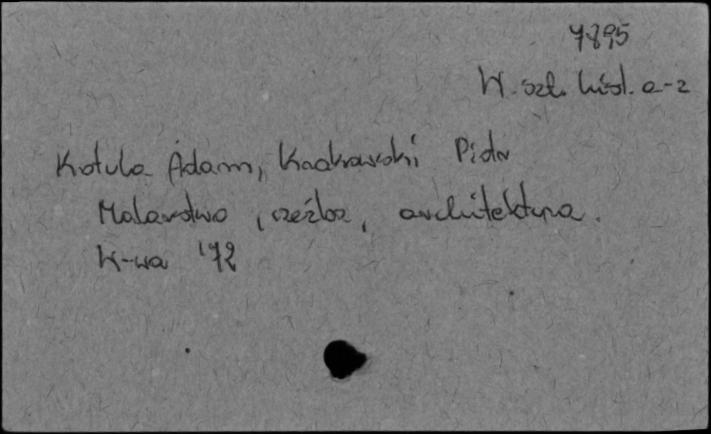 7895
W. szt. hist. a-z
Kotula Adam, Krakowski Piotr
Malarstwo, rzeźba, architektura.
W-wa '72